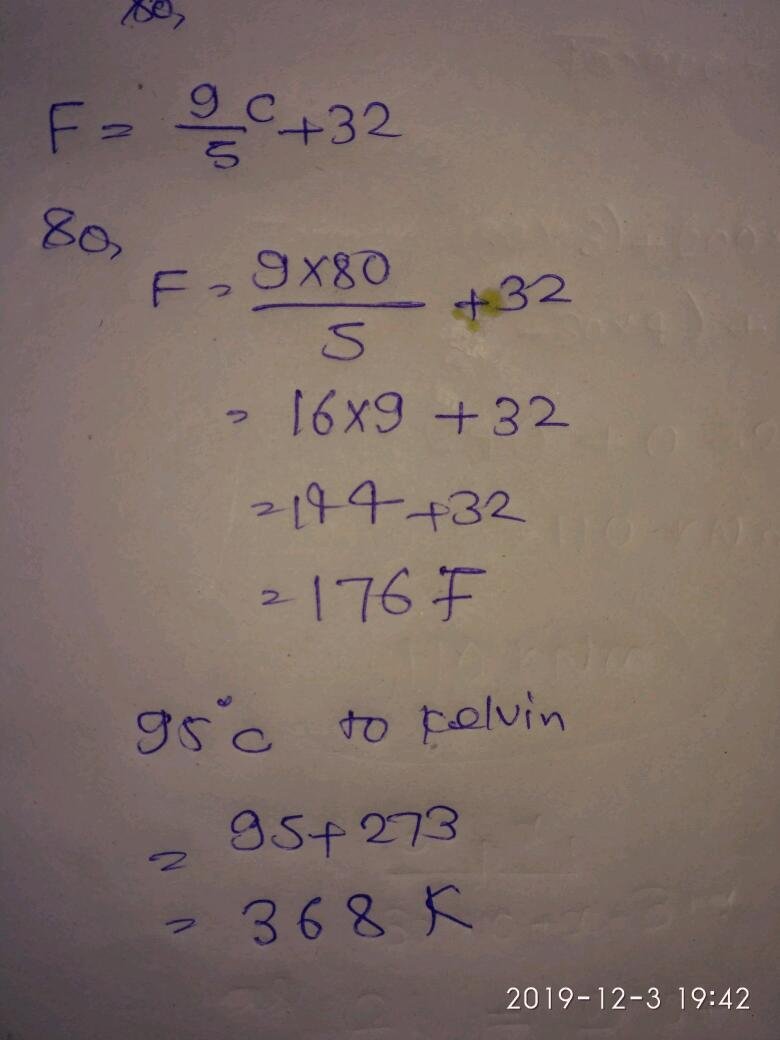 80,
F = 9/5 C + 32
80,
F = 9×80/5 + 32
= 16×9 + 32
= 144 + 32
= 176 F
95°C to Kelvin
= 95 + 273
= 368 K
2019-12-3 19:42